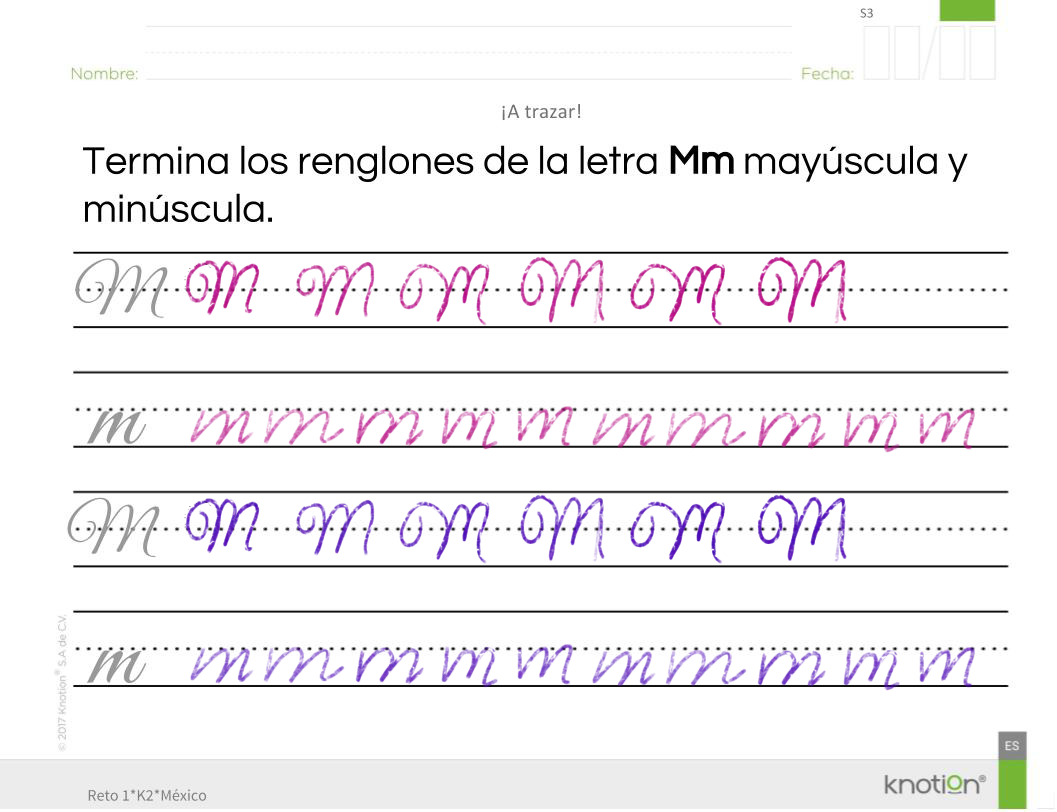 S3
Nombre:
Fecha:
¡A trazar!
Termina los renglones de la letra Mm mayúscula y
minúscula.
M M M M M M M
m m m m m m m m m m m
M M M M M M M
m m m m m m m m m m m
© 2017 Knotion® S.A de C.V.
ES
knotion®
Reto 1*K2*México